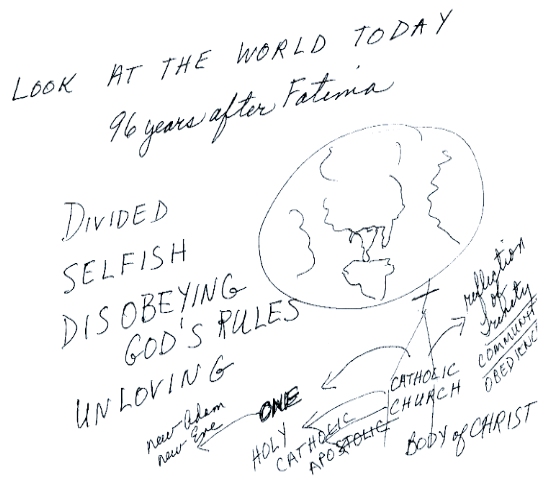 LOOK AT THE WORLD TODAY
96 years after Fatima
DIVIDED
SELFISH
DISOBEYING
GOD'S RULES
UNLOVING
new Adam
new Eve
ONE
HOLY
CATHOLIC
APOSTOLIC
CATHOLIC
CHURCH
BODY of CHRIST
reflection
of
Trinity
OBEDIENCE